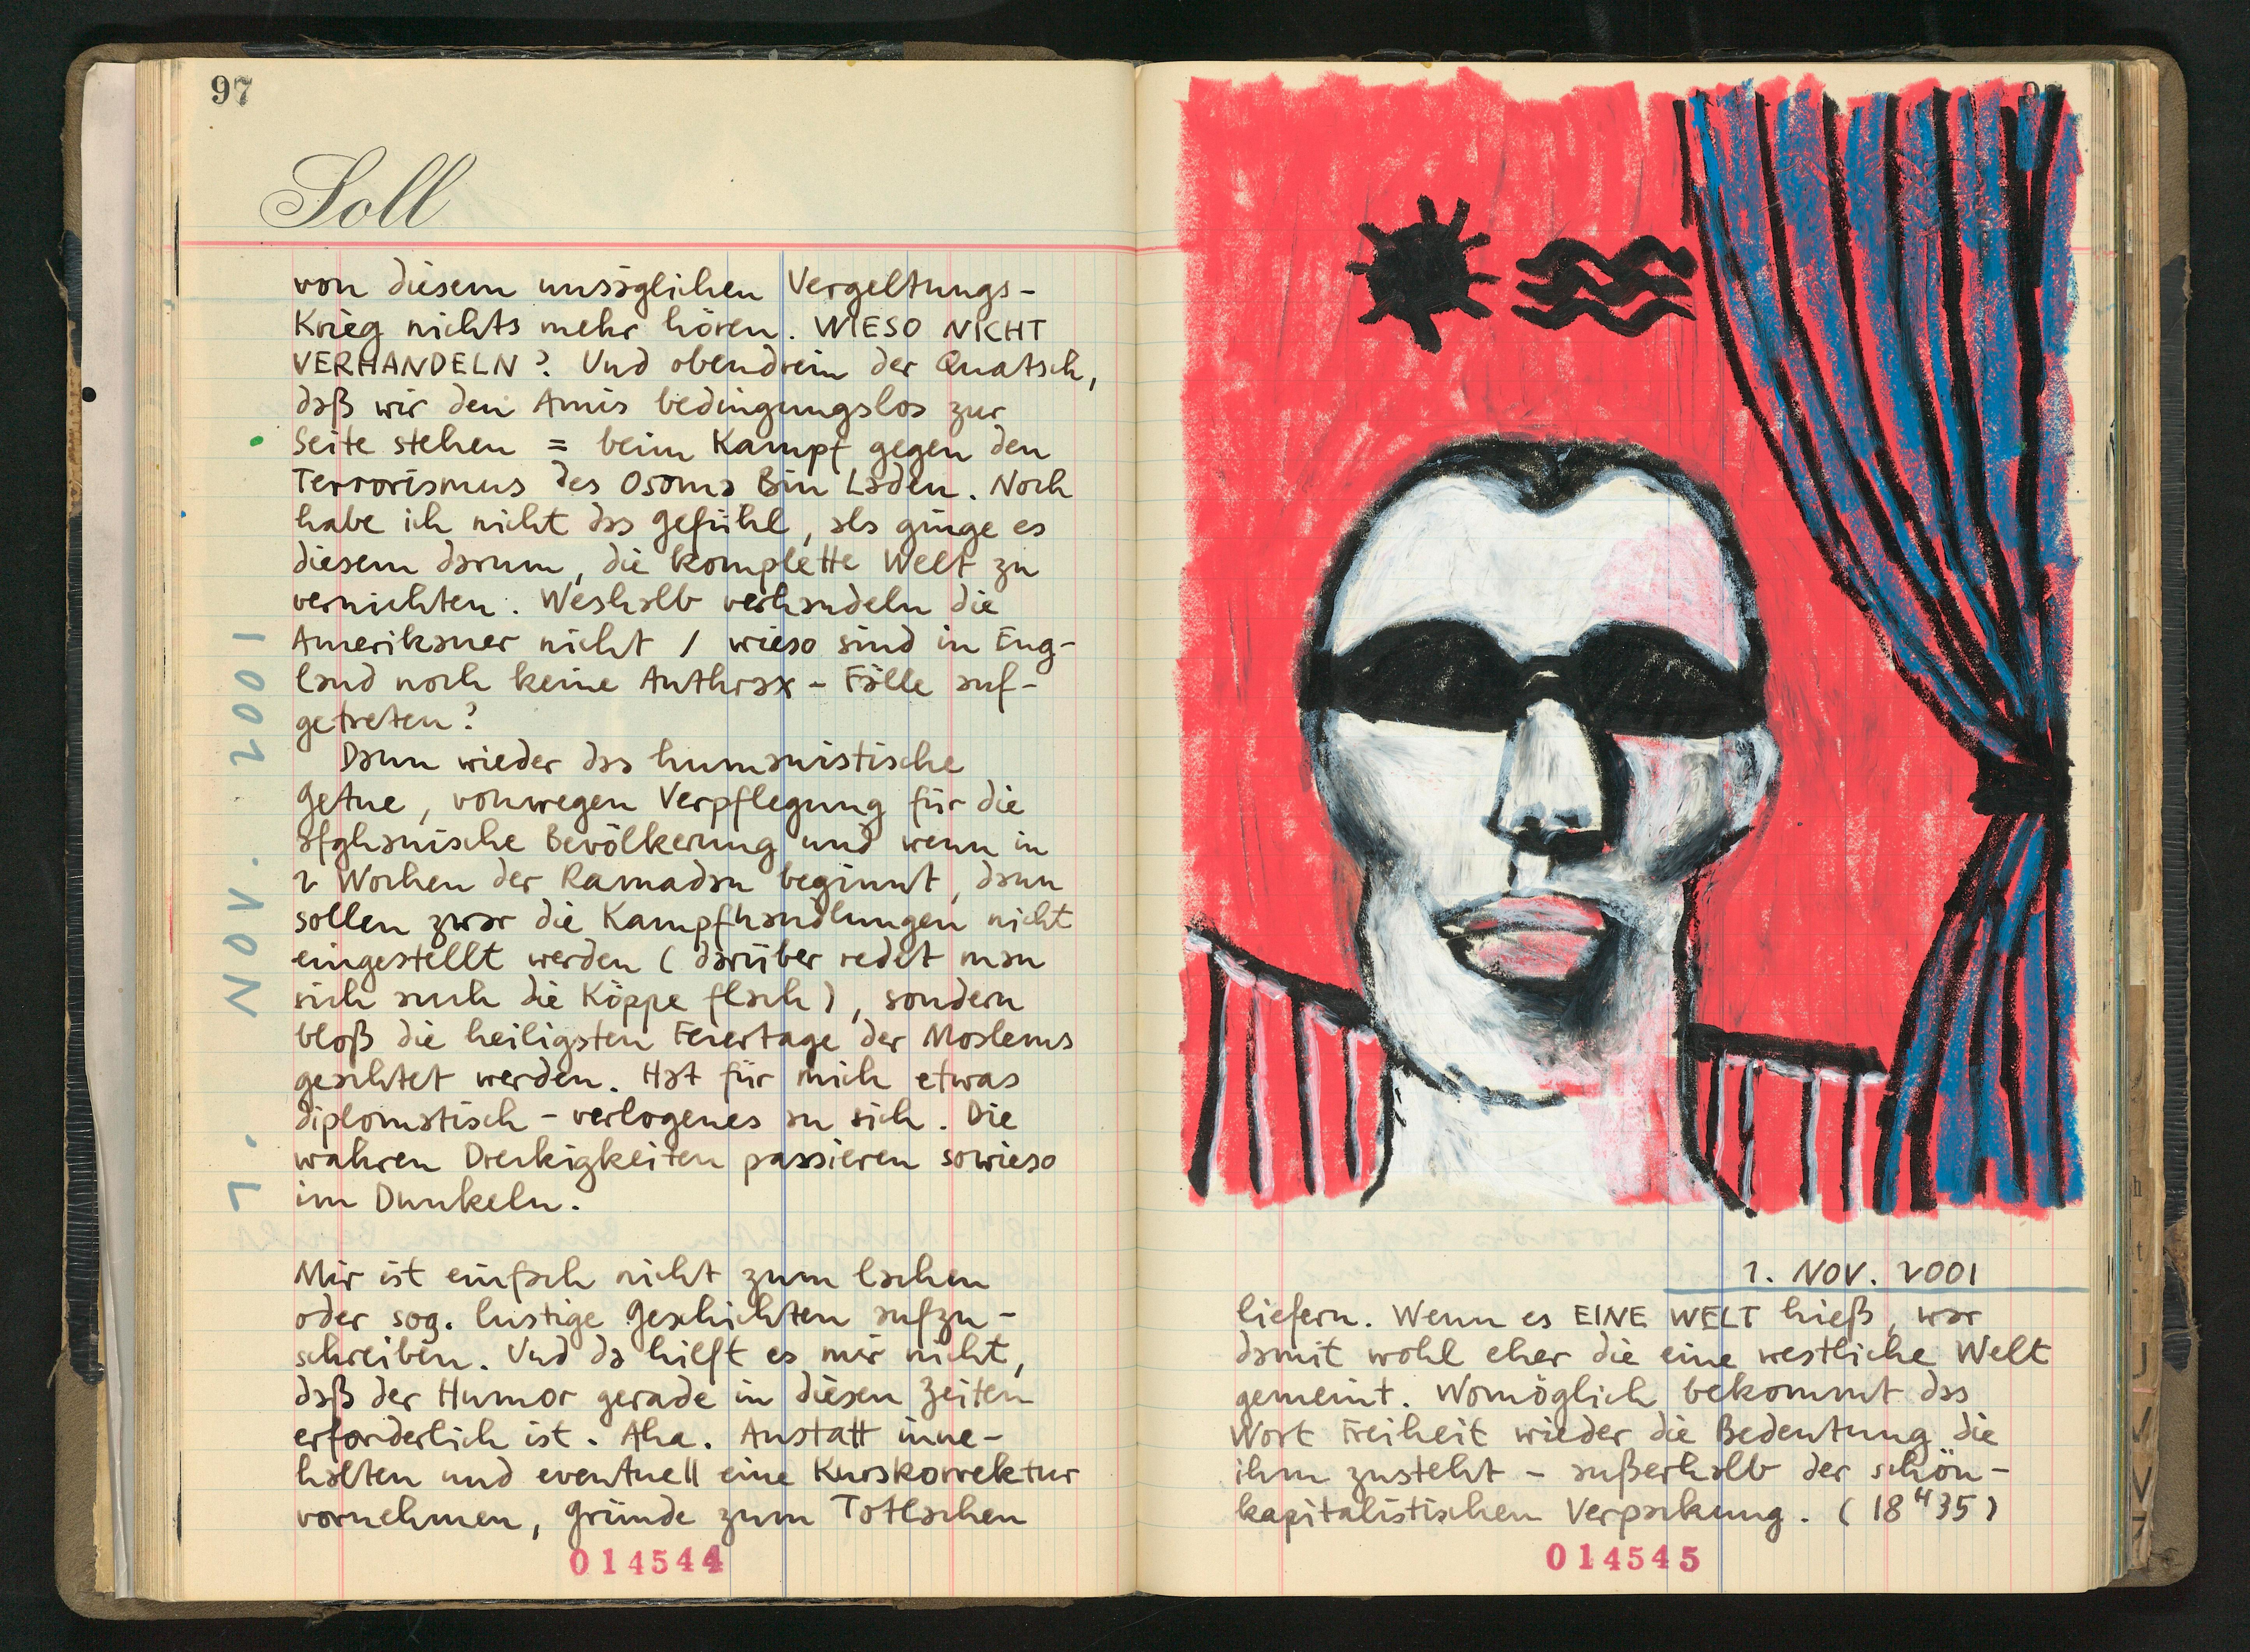 97
Soll
von diesem unsäglichen Vergeltungs-
Krieg nichts mehr hören. WIESO NICHT
VERHANDELN? Und obendrein der Quatsch,
daß wir den Amis bedingungslos zur
Seite stehen = beim Kampf gegen den
Terrorismus des Osama Bin Laden. Noch
habe ich nicht das Gefühl, als ginge es
diesem darum, die komplette Welt zu
vernichten. Weshalb verhandeln die
Amerikaner nicht / wieso sind in Eng-
land noch keine Anthrax-Fälle auf-
getreten?
Dann wieder das humanistische
Getue, vonwegen Verpflegung für die
afghanische Bevölkerung und wenn in
2 Wochen der Ramadan beginnt, dann
sollen zwar die Kampfhandlungen nicht
eingestellt werden (darüber redet man
sich auch die Köppe flach), sondern
bloß die heiligsten Feiertage der Moslems
geachtet werden. Hat für mich etwas
diplomatisch-verlogenes an sich. Die
wahren Dreckigkeiten passieren sowieso
im Dunkeln.
Mir ist einfach nicht zum lachen
oder sog. lustige Geschichten aufzu-
schreiben. Und da hilft es mir nicht,
daß der Humor gerade in diesen Zeiten
erforderlich ist. Aha. Anstatt inne-
halten und eventuell eine Kurskorrektur
vornehmen, Gründe zum Totlachen
1. NOV. 2001
014544
1. NOV. 2001
liefern. Wenn es EINE WELT hieß, war
damit wohl eher die eine westliche Welt
gemeint. Womöglich bekommt das
Wort Freiheit wieder die Bedeutung die
ihm zusteht - außerhalb der schön-
kapitalistischen Verpackung. (18 H 35)
014545